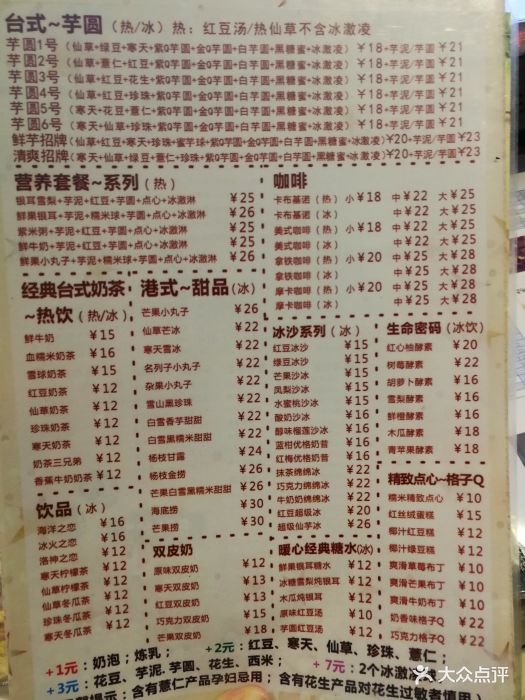 台式~芋圆（热/冰）热：红豆汤/热仙草不含冰激凌
芋圆1号（仙草+绿豆+寒天+紫Q芋圆+金Q芋圆+白芋圆+黑糖蜜+冰激凌）￥18+芋泥/芋圆￥21
芋圆2号（仙草+薏仁+红豆+紫Q芋圆+金Q芋圆+白芋圆+黑糖蜜+冰激凌）￥18+芋泥/芋圆￥21
芋圆3号（仙草+红豆+花生+紫Q芋圆+金Q芋圆+白芋圆+黑糖蜜+冰激凌）￥18+芋泥/芋圆￥21
芋圆4号（仙草+红豆+珍珠+紫Q芋圆+金Q芋圆+白芋圆+黑糖蜜+冰激凌）￥18+芋泥/芋圆￥21
芋圆5号（寒天+花豆+薏仁+紫Q芋圆+金Q芋圆+白芋圆+黑糖蜜+冰激凌）￥18+芋泥/芋圆￥21
芋圆6号（寒天+仙草+珍珠+紫Q芋圆+金Q芋圆+白芋圆+黑糖蜜+冰激凌）￥18+芋泥/芋圆￥21
鲜芋招牌（仙草+红豆+寒天+珍珠+蜜芋球+紫Q芋圆+金Q芋圆+白芋圆+黑糖蜜+冰激凌）￥20+芋泥/芋圆￥23
清爽招牌（寒天+仙草+绿豆+薏仁+珍珠+紫Q芋圆+金Q芋圆+白芋圆+黑糖蜜+冰激凌）￥20+芋泥/芋圆￥23
营养套餐~系列（热）
银耳雪梨+芋泥+红豆+芋圆+点心+冰激淋 ￥25
鲜果银耳+芋泥+糯米球+芋圆+点心+冰激淋 ￥26
紫米粥+芋泥+红豆+芋圆+点心+冰激淋 ￥25
鲜牛奶+芋泥+红豆+芋圆+点心+冰激淋 ￥25
鲜果小丸子+芋泥+糯米球+芋圆+点心+冰激淋 ￥26
咖啡
卡布基诺（热）小￥18 中￥22 大￥25
卡布基诺（冰） 中￥22 大￥25
美式咖啡（热）小￥18 中￥22 大￥25
美式咖啡（冰） 中￥22 大￥25
拿铁咖啡（热）小￥20 中￥25 大￥28
拿铁咖啡（冰） 中￥25 大￥28
摩卡咖啡（热）小￥20 中￥25 大￥28
摩卡咖啡（冰） 中￥25 大￥28
经典台式奶茶
~热饮（热/冰）
鲜牛奶 ￥15
血糯米奶茶 ￥16
雪球奶茶 ￥15
红豆奶茶 ￥12
仙草奶茶 ￥12
珍珠奶茶 ￥12
寒天奶茶 ￥12
奶茶三兄弟 ￥12
香蕉牛奶奶茶 ￥12
港式~甜品（冰）
芒果小丸子 ￥26
仙草芒冰 ￥22
寒天雪冰 ￥22
名列子小丸子 ￥22
杂果小丸子 ￥22
雪山黑珍珠 ￥22
白雪香芋甜甜 ￥22
白雪黑糯米甜甜 ￥22
杨枝甘露 ￥24
杨枝金捞 ￥22
芒果白雪黑糯米甜甜 ￥26
海底捞 ￥30
芒果捞 ￥30
冰沙系列（冰）
红豆冰沙 ￥15
绿豆冰沙 ￥15
芒果冰沙 ￥15
凤梨冰沙 ￥15
水蜜桃沙冰 ￥15
酸奶沙冰 ￥16
醇味榴莲沙冰 ￥16
蓝柑优格奶昔 ￥16
红梅优格奶昔 ￥16
抹茶绵绵冰 ￥22
巧克力绵绵冰 ￥22
牛奶奶绵绵冰 ￥22
红豆超级冰 ￥20
超级仙芋冰 ￥26
生命密码（冰饮）
红心柚酵素 ￥20
树莓酵素 ￥22
胡萝卜酵素 ￥22
雪梨酵素 ￥22
鲜橙酵素 ￥22
木瓜酵素 ￥22
青苹果酵素 ￥22
精致点心~格子Q
糯米精致点心 ￥10
红丝绒蛋糕 ￥15
椰汁红豆糕 ￥12
椰汁绿豆糕 ￥12
爽滑草莓布丁 ￥10
爽滑芒果布丁 ￥10
爽滑牛奶布丁 ￥10
奶香味格子Q ￥22
巧克力格子Q ￥22
饮品（冰）
海洋之恋 ￥16
冰火之恋 ￥16
洛神之恋 ￥16
寒天柠檬茶 ￥12
仙草柠檬茶 ￥12
仙草冬瓜茶 ￥12
珍珠冬瓜茶 ￥12
寒天冬瓜茶 ￥12
双皮奶
原味双皮奶 ￥12
寒天双皮奶 ￥13
红豆双皮奶 ￥15
巧克力双皮奶 ￥15
芒果双皮奶 ￥18
暖心经典糖水(冰)
鲜果银耳糖水 ￥12
冰糖雪梨炖银耳 ￥13
木瓜炖银耳 ￥13
原味红豆汤 ￥10
芋圆红豆汤 ￥12
+1元：奶泡；炼乳； +2元：红豆、寒天、仙草、珍珠、薏仁；
+3元：花豆、芋泥.芋圆、花生、西米； +7元：2个冰激凌
含有薏仁产品孕妇忌用；含有花生产品对花生过敏者慎用
大众点评